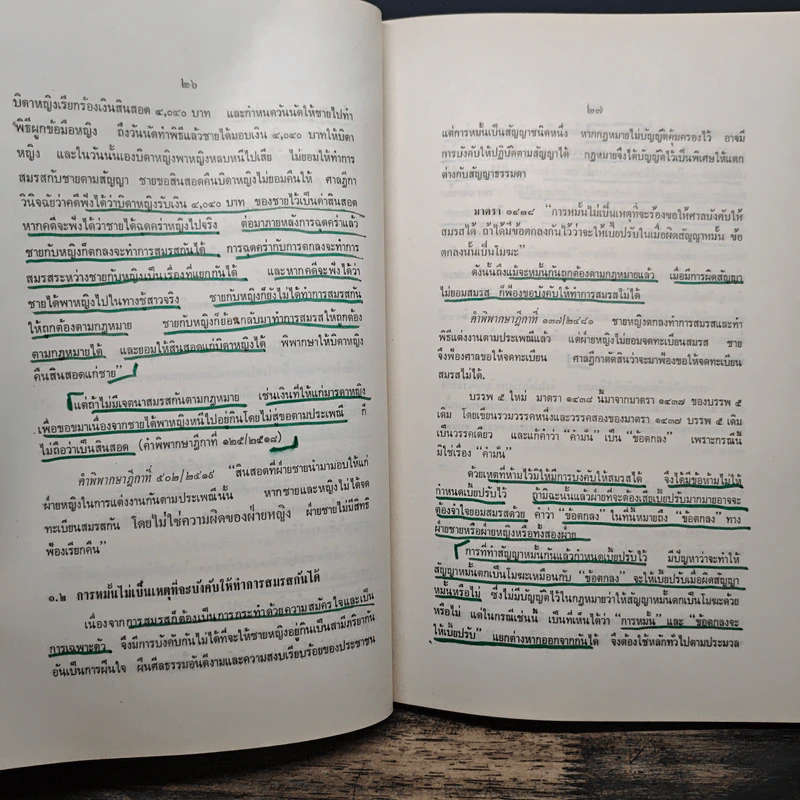 ๒๖
บิดาหญิงเรียกร้องเงินสินสอด ๔,๐๔๐ บาท และกำหนดวันนัดให้ชายไปทำ
พิธีผูกข้อมือหญิง ถึงวันนัดทำพิธีแล้วชายได้มอบเงิน ๔,๐๔๐ บาทให้บิดา
หญิง และในวันนั้นเองบิดาหญิงพาหญิงหลบหนีไปเสีย ไม่ยอมให้ทำการ
สมรสกับชายตามสัญญา ชายขอสินสอดคืนบิดาหญิงไม่ยอมคืนให้ ศาลฎีกา
วินิจฉัยว่าคดีฟังได้ว่าบิดาหญิงรับเงิน ๔,๐๔๐ บาท ของชายไว้เป็นค่าสินสอด
หากคดีจะฟังได้ว่าชายได้ฉุดคร่าหญิงไปจริง ต่อมาภายหลังการฉุดคร่าแล้ว
ชายกับหญิงก็ตกลงจะทำการสมรสกันได้ การฉุดคร่ากับการตกลงจะทำการ
สมรสระหว่างชายกับหญิงเป็นเรื่องที่แยกกันได้ และหากคดีจะฟังได้ว่า
ชายได้พาหญิงไปในทางชู้สาวจริง ชายกับหญิงก็ยังไม่ได้ทำการสมรสกัน
ให้ถูกต้องตามกฎหมาย ชายกับหญิงก็ย้อนกลับมาทำการสมรสให้ถูกต้อง
ตามกฎหมายได้ และยอมให้สินสอดแก่บิดาหญิงได้ พิพากษาให้บิดาหญิง
คืนสินสอดแก่ชาย”
แต่ถ้าไม่มีเจตนาสมรสกันตามกฎหมาย เช่นเงินที่ให้แก่มารดาหญิง
เพื่อขอขมาเนื่องจากชายได้พาหญิงหนีไปอยู่กินโดยไม่สู่ขอตามประเพณี ก็
ไม่ถือว่าเป็นสินสอด (คำพิพากษาฎีกาที่ ๑๒๕/๒๕๑๘)
คำพิพากษาฎีกาที่ ๕๐๒/๒๔๑๙ “สินสอดที่ฝ่ายชายนำมามอบให้แก่
ฝ่ายหญิงในการแต่งงานกันตามประเพณีนั้น หากชายและหญิงไม่ได้จด
ทะเบียนสมรสกัน โดยไม่ใช่ความผิดของฝ่ายหญิง ฝ่ายชายไม่มีสิทธิ
ฟ้องเรียกคืน”
๑.๒ การหมั้นไม่เป็นเหตุที่จะบังคับให้ทำการสมรสกันได้
เนื่องจากการสมรสก็ต้องเป็นการกระทำด้วยความสมัครใจและเป็น
การเฉพาะตัว จึงมีการบังคับกันไม่ได้ที่จะให้ชายหญิงอยู่กินเป็นสามีภริยากัน
อันเป็นการฝืนใจ ผืนศีลธรรมอันดีงามและความสงบเรียบร้อยของประชาชน
๒๗
แต่การหมั้นเป็นสัญญาชนิดหนึ่ง หากกฎหมายไม่บัญญัติคุ้มครองไว้ อาจมี
การบังคับให้ปฏิบัติตามสัญญาได้ กฎหมายจึงได้บัญญัติไว้เป็นพิเศษให้แตก
ต่างกับสัญญาธรรมดา
มาตรา ๑๔๓๘ “การหมั้นไม่เป็นเหตุที่จะร้องขอให้ศาลบังคับให้
สมรสได้ ถ้าได้มีข้อตกลงกันไว้ว่าจะให้เบี้ยปรับในเมื่อผิดสัญญาหมั้น ข้อ
ตกลงนั้นเป็นโมฆะ”
ดังนั้นถึงแม้จะหมั้นกันถูกต้องตามกฎหมายแล้ว เมื่อมีการผิดสัญญา
ไม่ยอมสมรส ก็ฟ้องขอบังคับให้ทำการสมรสไม่ได้
คำพิพากษาฎีกาที่ ๑๓๗/๒๔๘๑ ชายหญิงตกลงทำการสมรสและทำ
พิธีแต่งงานตามประเพณีแล้ว แต่ฝ่ายหญิงไม่ยอมจดทะเบียนสมรส ชาย
จึงฟ้องศาลขอให้จดทะเบียน ศาลฎีกาตัดสินว่าจะมาฟ้องขอให้จดทะเบียน
สมรสไม่ได้.
บรรพ ๕ ใหม่ มาตรา ๑๔๓๘ นี้มาจากมาตรา ๑๔๓๗ ของบรรพ ๕
เดิม โดยเขียนรวมวรรคหนึ่งและวรรคสองของมาตรา ๑๔๓๗ บรรพ ๕ เดิม
เป็นวรรคเดียว และแก้คำว่า “คำมั่น” เป็น “ข้อตกลง” เพราะกรณีนี้
มิใช่เรื่อง “คำมั่น”
ด้วยเหตุที่ห้ามไว้มิให้มีการบังคับให้สมรสได้ จึงได้มีข้อห้ามไม่ให้
กำหนดเบี้ยปรับไว้ ถ้ามิฉะนั้นแล้วฝ่ายที่จะต้องเสียเบี้ยปรับมากมายอาจจะ
ต้องจำใจยอมสมรสด้วย คำว่า “ข้อตกลง” ในที่นี้หมายถึง “ข้อตกลง” ทาง
ฝ่ายชายหรือฝ่ายหญิงหรือทั้งสองฝ่าย
การที่ทำสัญญาหมั้นกันแล้วกำหนดเบี้ยปรับไว้ มีปัญหาว่าจะทำให้
สัญญาหมั้นตกเป็นโมฆะเหมือนกับ “ข้อตกลง” จะให้เบี้ยปรับเมื่อผิดสัญญา
หมั้นหรือไม่ ซึ่งไม่มีบัญญัติไว้ในกฎหมายว่าให้สัญญาหมั้นตกเป็นโมฆะด้วย
หรือไม่ แต่ในกรณีเช่นนี้ เป็นที่เห็นได้ว่า “การหมั้น” และ “ข้อตกลงจะ
ให้เบี้ยปรับ” แยกต่างหากออกจากกันได้ จึงต้องใช้หลักทั่วไปตามประมวล